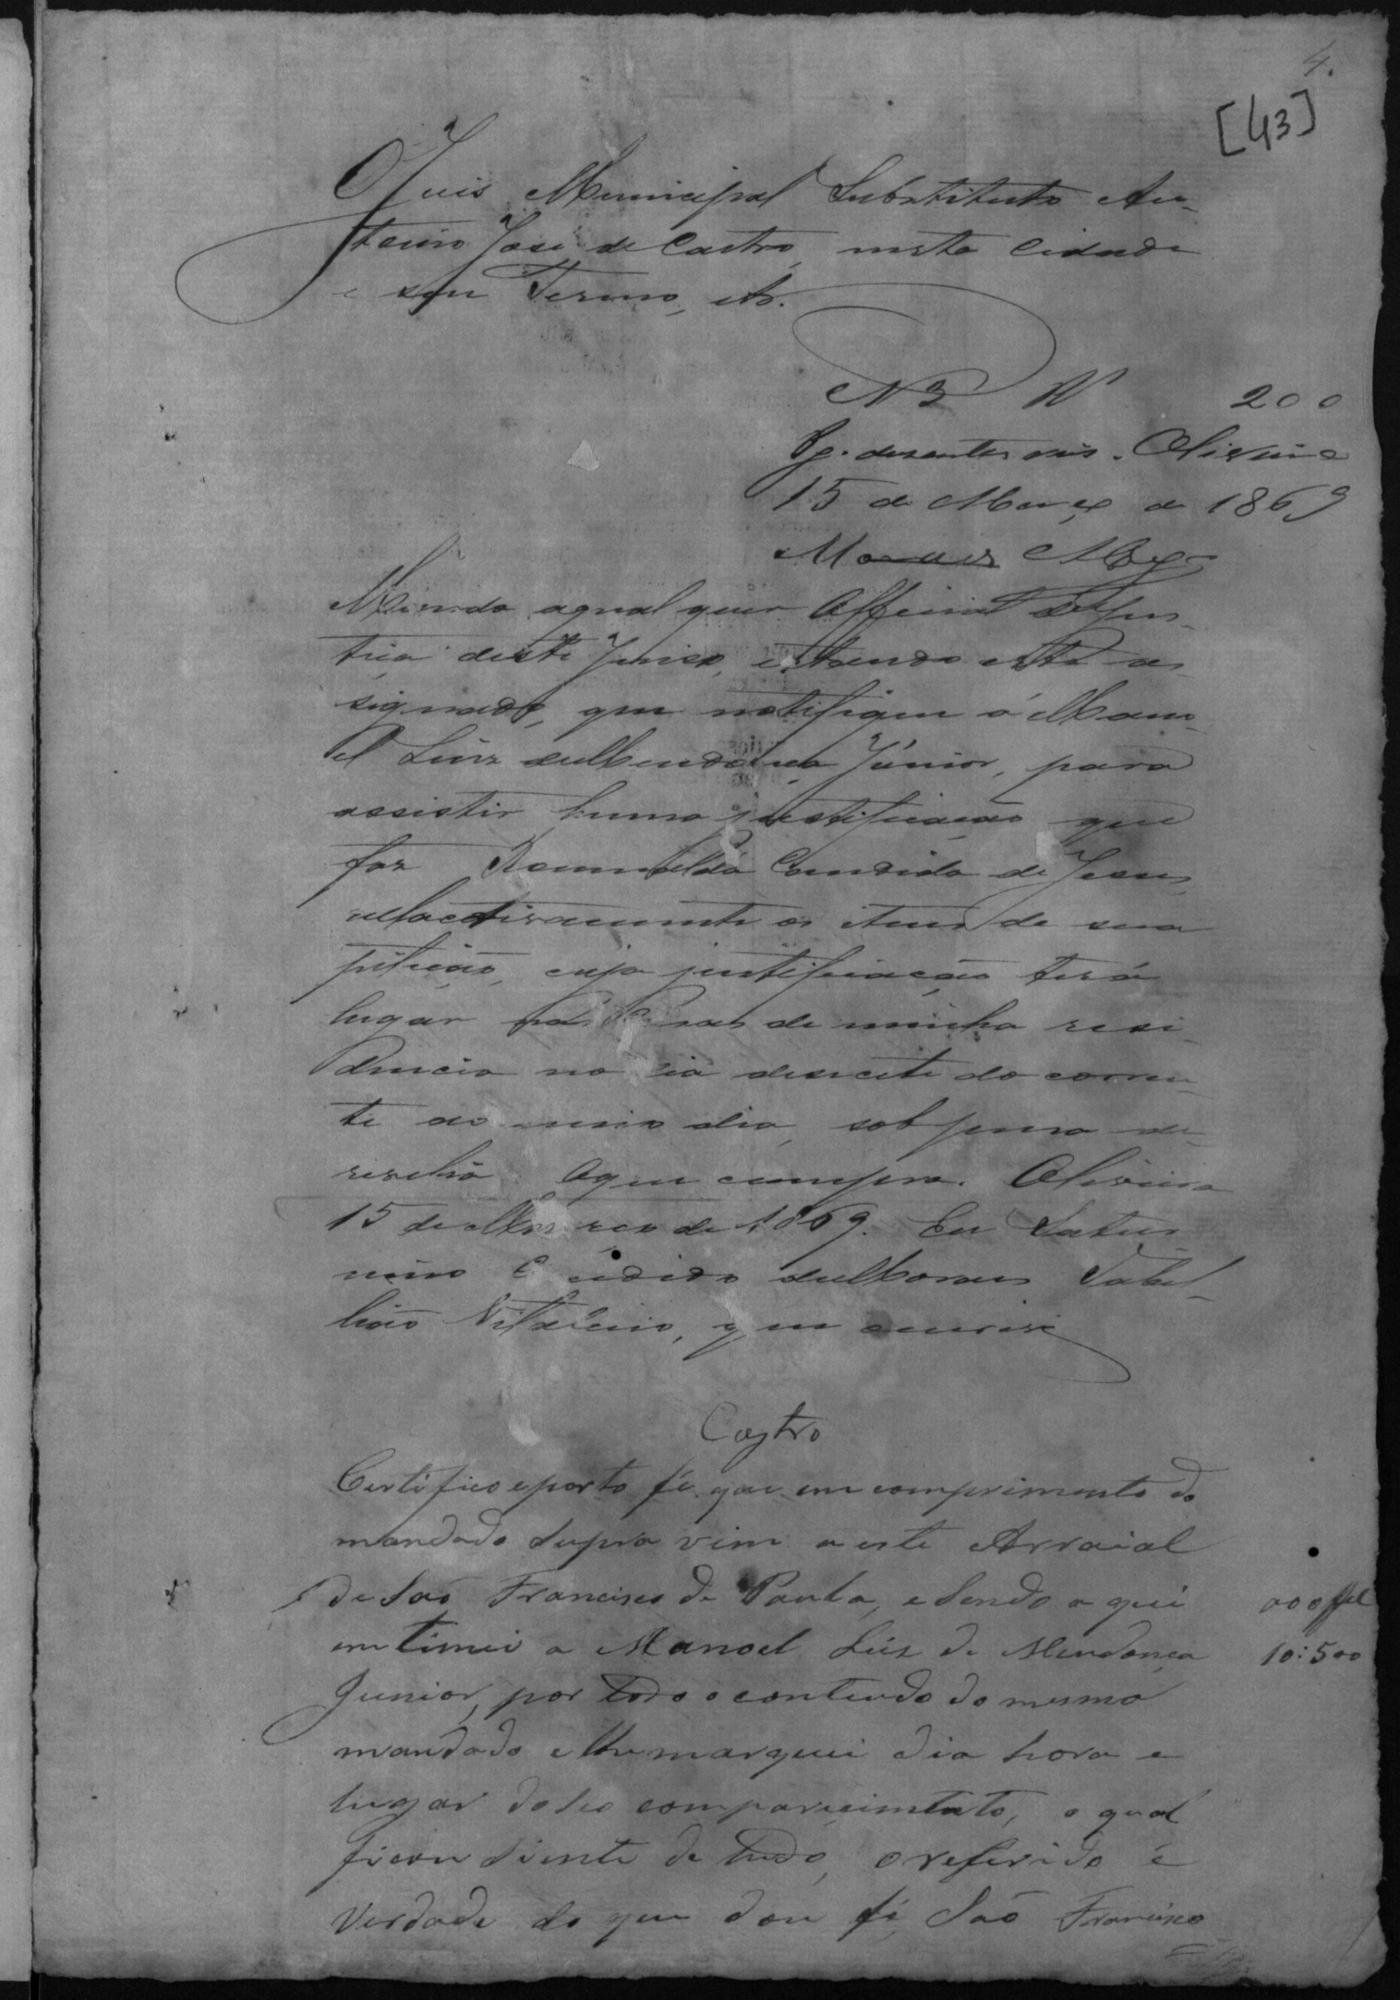 4.
[43]
O Juis Municipal Substituto An-
tonio José de Castro, nesta Cidade
e seu Termo, etc.
N 3 200
Pg. dusentos reis. Oliveira
15 de Março de 1869
Moraes
Mando aqual quer Official de Jus-
tiça deste Juiso, estando este as-
signado, que notifique á Mano-
el Luiz de Mendonça Júnior, para
assistir huma justificação que
faz Romualda Candida de Jesus,
rellactivamente os itens de sua
pitição, cuja justificação terá
lugar nas Casas de minha resi-
dencia no dia desecete do corren-
te ao meio dia, sob pena de
revelia. Oque cumpra. Oliveira
15 de Março de 1869. Eu Satur
nino Candido de Moraes Tabel-
lião Vitalicio, que escrevi
Castro
Certifico eporto fé que em comprimento do
mandado supra vim a este Arraial
de São Francisco de Paula, e Sendo a qui
em timei a Manoel Luis de Mendonça
Junior, por todo o conteudo do mesmo
mandado e lhe marquei dia hora e
lugar do seo comparecimento, o qual
ficou Siente de tudo, o referido é
Verdade do que dou fé, São Francisco
10:500